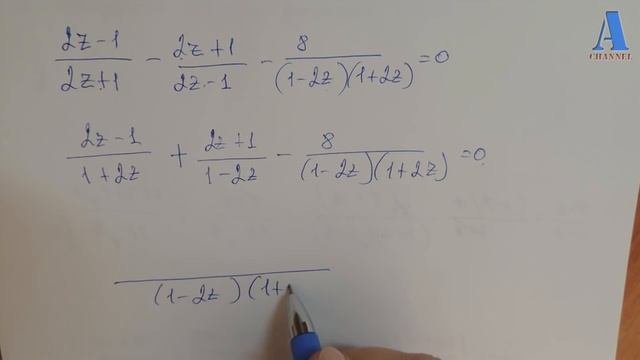 A
CHANNEL
(2z-1)/(2z+1) - (2z+1)/(2z-1) - 8/((1-2z)(1+2z)) = 0
(2z-1)/(1+2z) + (2z+1)/(1-2z) - 8/((1-2z)(1+2z)) = 0
(1-2z)(1+